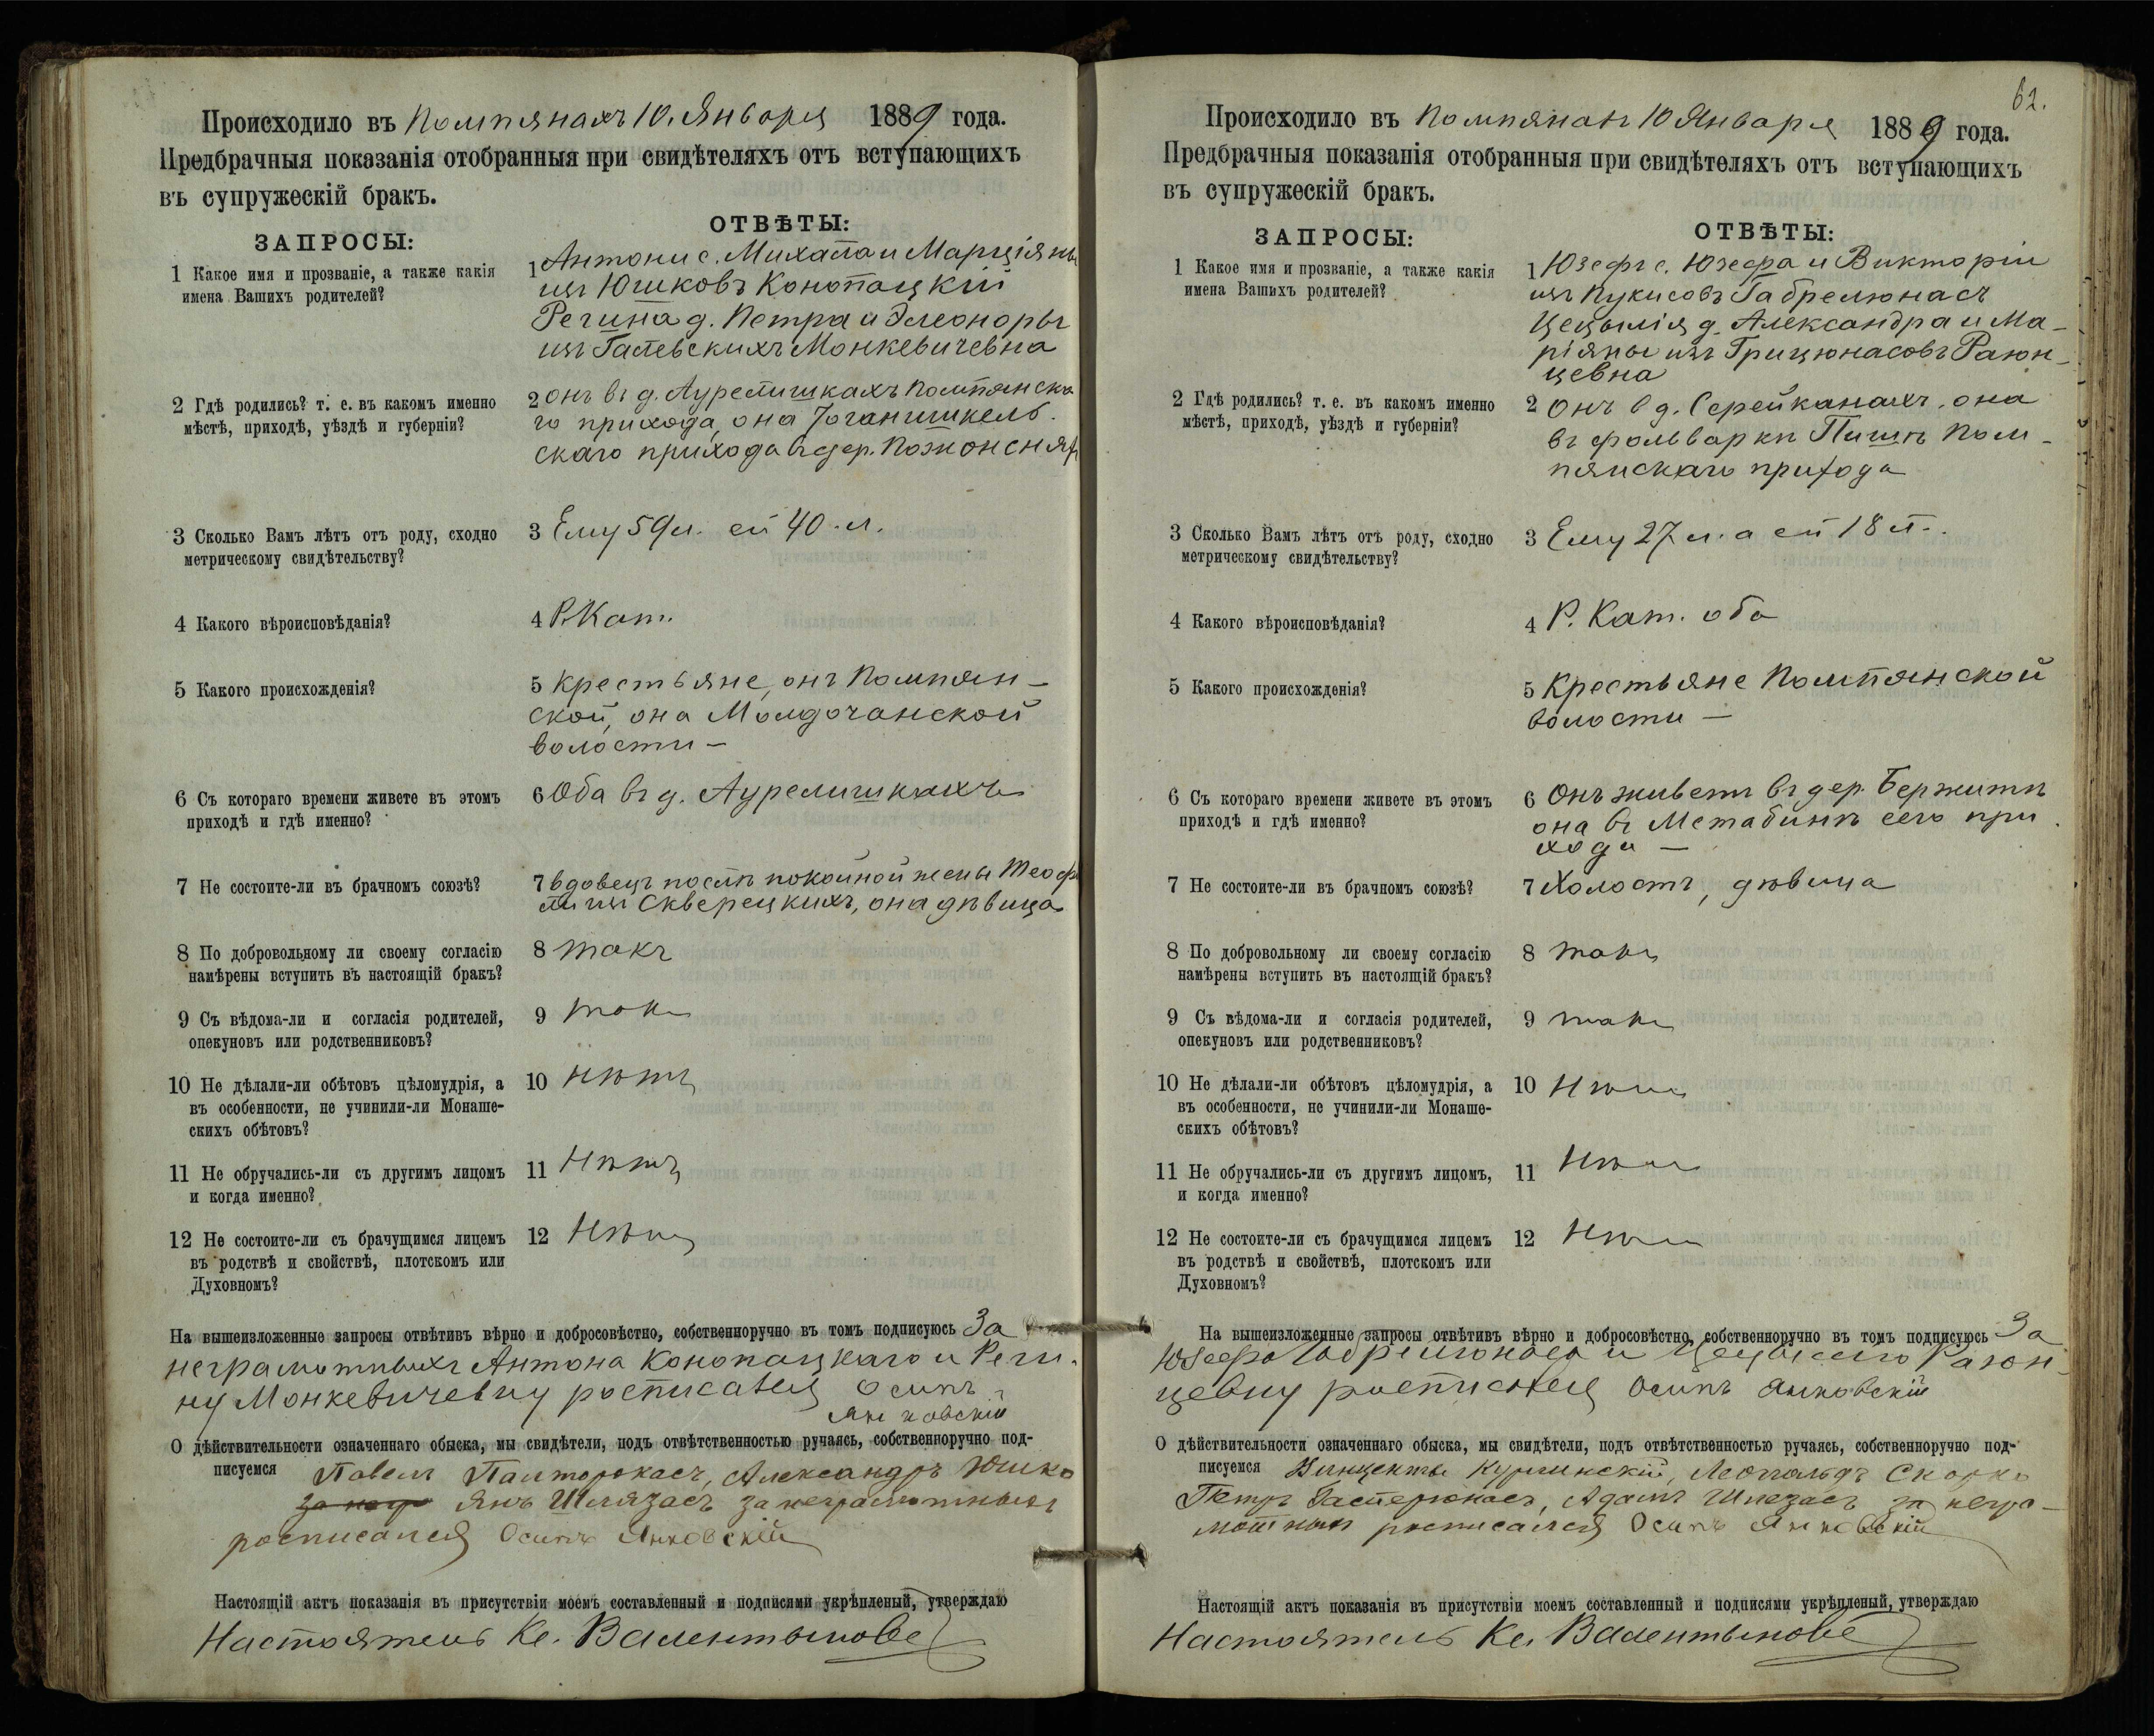 Происходило въ Помпянахъ 10. Января 1889 года.
Предбрачныя показанія отобранныя при свидѣтеляхъ отъ вступающихъ
въ супружескій бракъ.
ЗАПРОСЫ:
ОТВѢТЫ:
1 Какое имя и прозваніе, а также какія
имена Вашихъ родителей?
1 Антони с. Михала и Марціяны
изъ Юшковъ Конопацкій
Регина д. Петра и Элеоноры
изъ Галевскихъ Монкевичевна
2 Гдѣ родились? т. е. въ какомъ именно
мѣстѣ, приходѣ, уѣздѣ и губерніи?
2 онъ въ д. Аурелишкахъ Помпянска
го прихода, она Іоганишкель.
скаго прихода въ дер.
3 Сколько Вамъ лѣтъ отъ роду, сходно
метрическому свидѣтельству?
3 Ему 59 л. ей 40. л.
4 Какого вѣроисповѣданія?
4 Р. Кат.
5 Какого происхожденія?
5 крестьяне, онъ Помпян-
ской, она
волости —
6 Съ котораго времени живете въ этомъ
приходѣ и гдѣ именно?
6 Оба въ д. Аурелишкахъ
7 Не состоите-ли въ брачномъ союзѣ?
7 вдовецъ послѣ покойной жены Теофи
ли изъ Скверецкихъ, она дѣвица
8 По добровольному ли своему согласію
намѣрены вступить въ настоящій бракъ?
8 такъ
9 Съ вѣдома-ли и согласія родителей,
опекуновъ или родственниковъ?
9 такъ
10 Не дѣлали-ли обѣтовъ цѣломудрія, а
въ особенности, не учинили-ли Монаше-
скихъ обѣтовъ?
10 нѣтъ
11 Не обручались-ли съ другимъ лицомъ
и когда именно?
11 Нѣтъ
12 Не состоите-ли съ брачущимся лицемъ
въ родствѣ и свойствѣ, плотскомъ или
Духовномъ?
12 Нѣтъ
На вышеизложенные запросы отвѣтивъ вѣрно и добросовѣстно, собственноручно въ томъ подписуюсь За
неграмотныхъ Антона Конопацкаго и Реги-
ну Монкевичевну росписался Осипъ
Янковскій
О дѣйствительности означеннаго обыска, мы свидѣтели, подъ отвѣтственностью ручаясь, собственноручно под-
писуемся Павелъ Александръ Юшко
Янъ Шлязасъ за неграмотныхъ
росписался Осипъ Янковскій
Настоящій актъ показанія въ присутствіи моемъ составленный и подписями укрѣпленый, утверждаю
Настоятель Кс. Валентыновъ
62.
Происходило въ Помпянахъ 10 Января 1889 года.
Предбрачныя показанія отобранныя при свидѣтеляхъ отъ вступающихъ
въ супружескій бракъ.
ЗАПРОСЫ:
ОТВѢТЫ:
1 Какое имя и прозваніе, а также какія
имена Вашихъ родителей?
1 Юзефъ с. Юзефа и Викторіи
изъ Пукисовъ Габрелюнасъ
Цецылія д. Александра и Ма-
ріяны изъ Грицюнасовъ Раюн-
цевна
2 Гдѣ родились? т. е. въ какомъ именно
мѣстѣ, приходѣ, уѣздѣ и губерніи?
2 онъ в д. Серейканахъ, она
въ фольваркѣ Пишѣ Пом-
пянскаго прихода
3 Сколько Вамъ лѣтъ отъ роду, сходно
метрическому свидѣтельству?
3 Ему 27 л. а ей 18 л.
4 Какого вѣроисповѣданія?
4 Р. Кат. оба
5 Какого происхожденія?
5 Крестьяне Помпянской
волости —
6 Съ котораго времени живете въ этомъ
приходѣ и гдѣ именно?
6 Онъ живетъ въ дер.
она въ сего при
хода —
7 Не состоите-ли въ брачномъ союзѣ?
7 Холостъ, дѣвица
8 По добровольному ли своему согласію
намѣрены вступить въ настоящій бракъ?
8 такъ
9 Съ вѣдома-ли и согласія родителей,
опекуновъ или родственниковъ?
9 такъ
10 Не дѣлали-ли обѣтовъ цѣломудрія, а
въ особенности, не учинили-ли Монаше-
скихъ обѣтовъ?
10 Нѣтъ
11 Не обручались-ли съ другимъ лицомъ,
и когда именно?
11 Нѣтъ
12 Не состоите-ли съ брачущимся лицемъ
въ родствѣ и свойствѣ, плотскомъ или
Духовномъ?
12 Нѣтъ
На вышеизложенные запросы отвѣтивъ вѣрно и добросовѣстно, собственноручно въ томъ подписуюсь За
Юзефа Габрелюнаса и Раюн-
цевну росписался Осипъ Янковскій
О дѣйствительности означеннаго обыска, мы свидѣтели, подъ отвѣтственностью ручаясь, собственноручно под-
писуемся Леопольдъ
Петръ Гасперюнасъ, Адамъ Шлезасъ за негра-
мотныхъ росписался Осипъ Янковскій
Настоящій актъ показанія въ присутствіи моемъ составленный и подписями укрѣпленый, утверждаю
Настоятель Кс. Валентыновъ